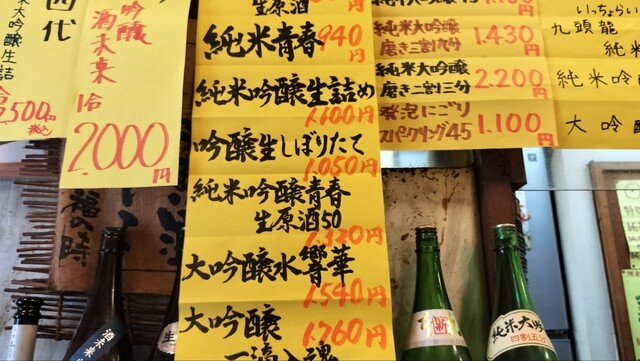 四代
大吟醸生詰
500円
税込
吟醸
酒未来
1合
2000円
生原酒
純米青春
940円
純米吟醸生詰め
1.100円
吟醸生しぼりたて
1.050円
純米吟醸青春
生原酒50
1.320円
大吟醸水響華
1.540円
大吟醸
1.760円
一滴入魂
純米大吟醸
磨き三割九分
1.430円
純米大吟醸
磨き二割三分
2.200円
発泡にごり
スパークリング45
1.100円
いっちょらい
九頭龍
純米
純米吟
大吟醸
福の時
酒未来
純米大吟醸
四割五分